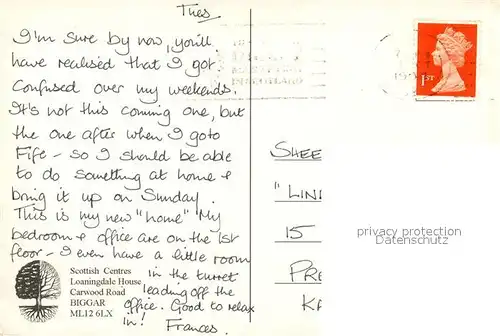 Tues
I'm sure by now, you'll
have realised that I got
confused over my weekends.
It's not this coming one, but
the one after when I go to
Fife - so I should be able
to do something at home &
bring it up on Sunday.
This is my new "home" My
bedroom & office are on the 1st
floor - I even have a little room
in the turret
leading off the
office. Good to relax
in! Frances.
Scottish Centres
Loaningdale House
Carwood Road
BIGGAR
ML12 6LX
1ST
SHEE
"LIN
15
PRE
KA
privacy protection
Datenschutz